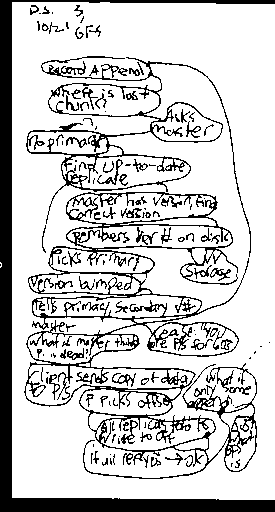 D.S. 3,
10/21 GFS
Record Append
Where is last
chunk?
Asks
master
no primary
Find up-to-date
replicate
master has version, find
correct version
Rembers Ver # on disk
Picks Primary
Storage
Version bumped
Tells primary, secondary V#
master
What if master thinks
P. is dead?
Client sends copy of data
to P/S
What if
only some
P Picks offset
All replicas told to
write to off
If all reply → OK